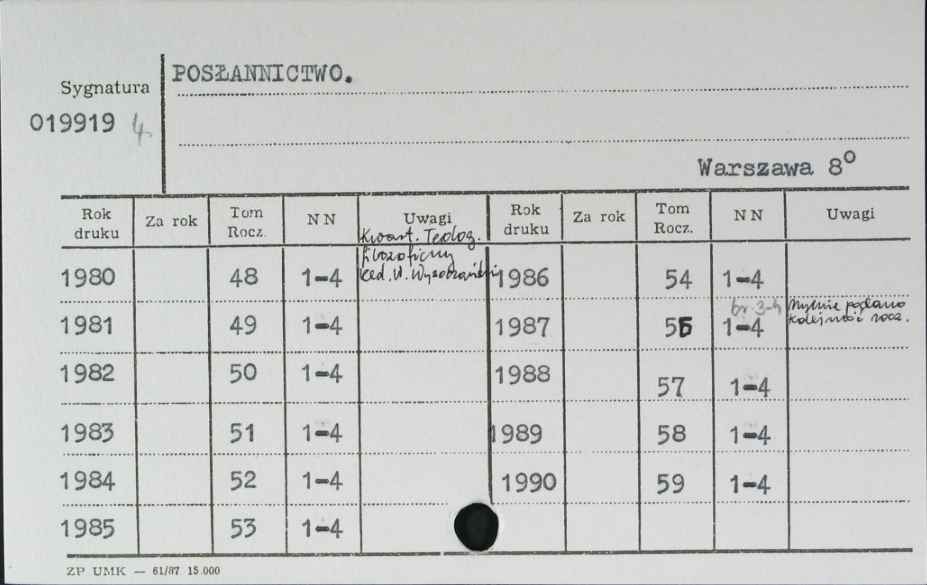 POSŁANNICTWO.
Sygnatura
019919 4.
Warszawa 8°
Rok druku Za rok Tom Rocz. NN Uwagi Rok druku Za rok Tom Rocz. NN Uwagi
Kwart. Teolog.
filozoficzny
1980 48 1-4 red. W. 1986 54 1-4
br 3-4 Mylnie podano
1981 49 1-4 1987 55 1-4 kolejność rocz.
1982 50 1-4 1988 57 1-4
1983 51 1-4 1989 58 1-4
1984 52 1-4 1990 59 1-4
1985 53 1-4
ZP UMK — 61/87 15.000